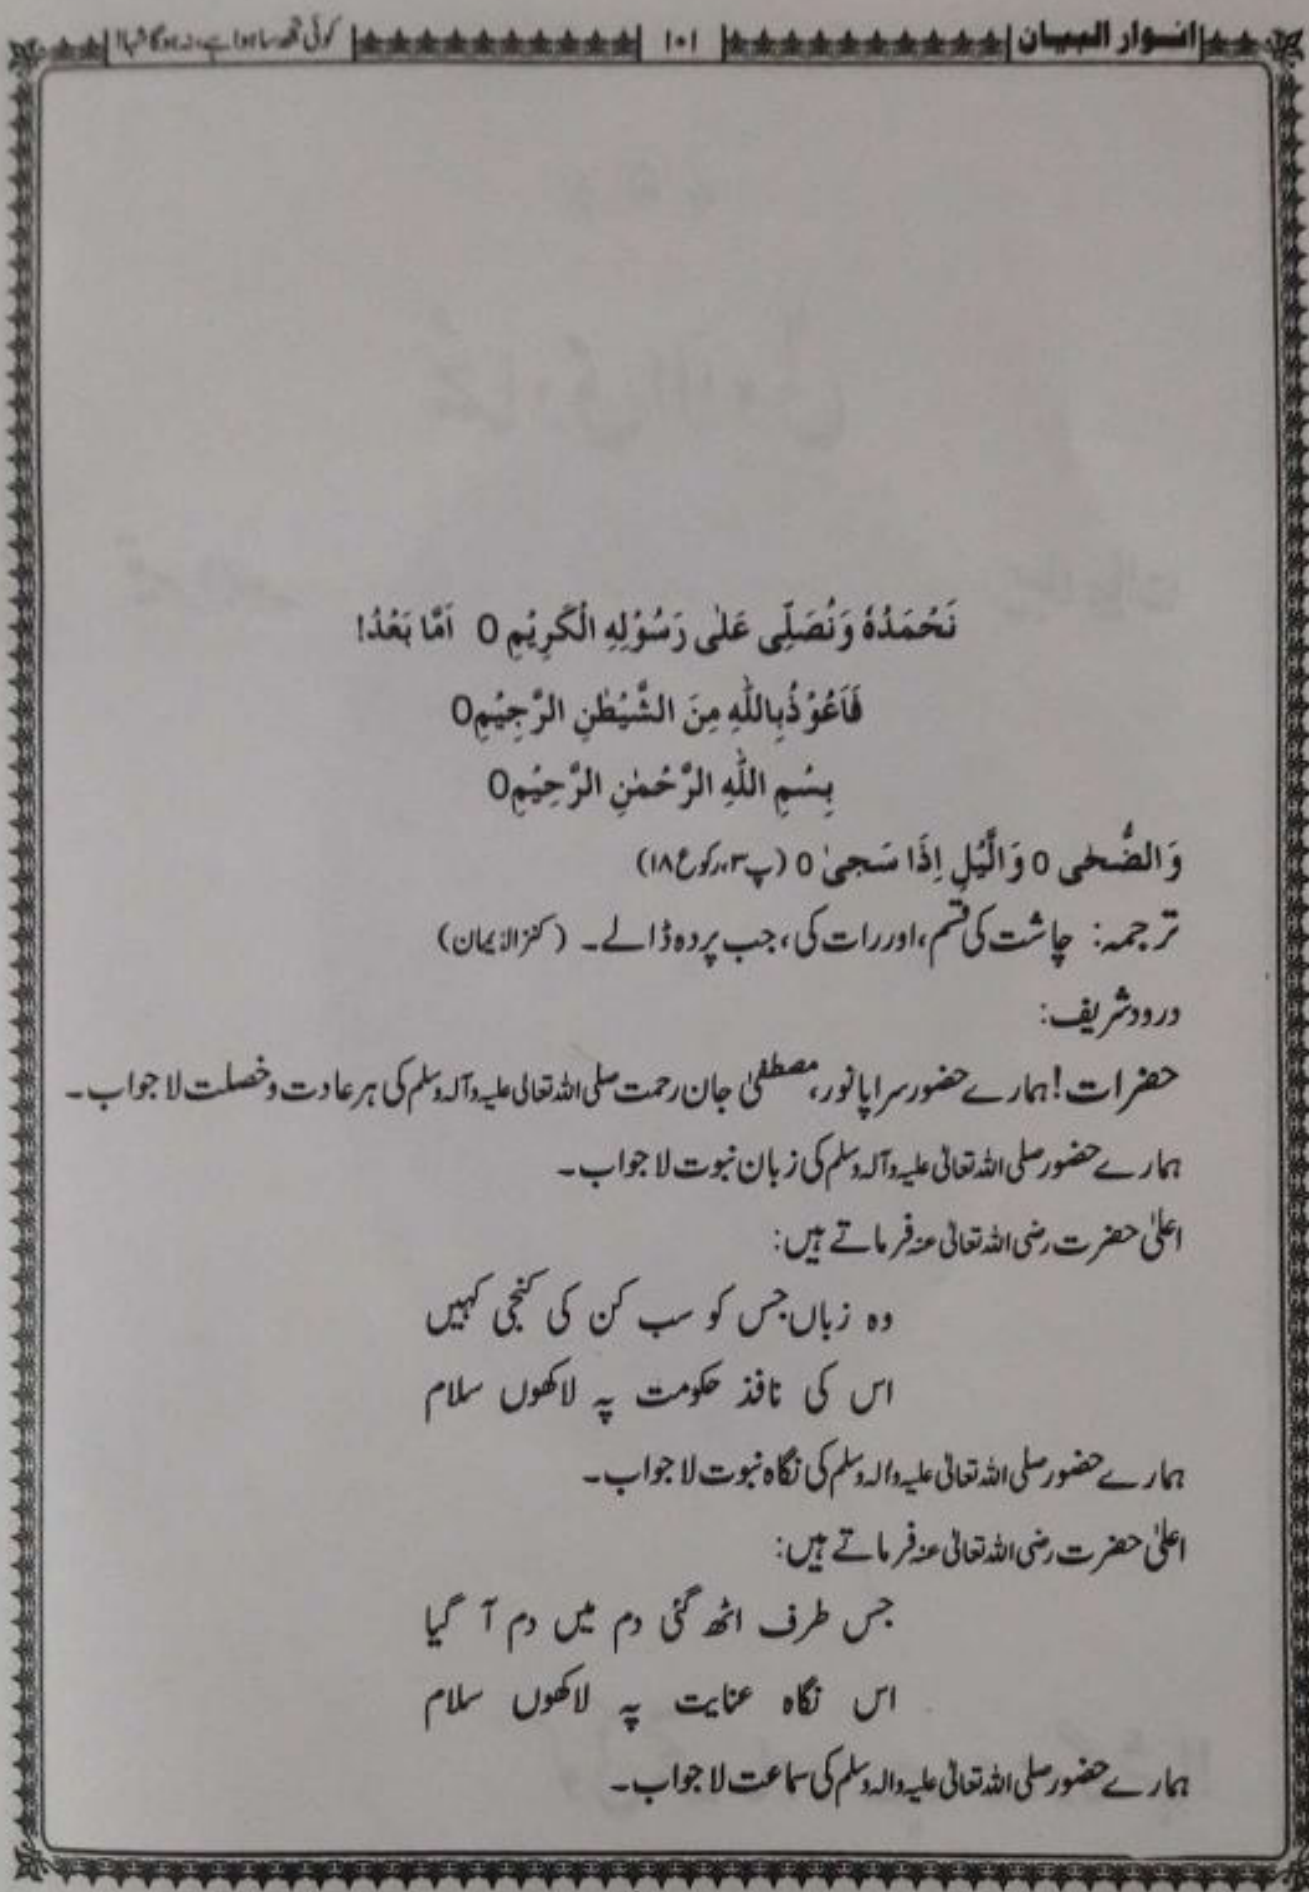 انوار البیان
۱۰۱
کوئی تجھ سا ہوا ہے، نہ ہوگا شہا!
نَحْمَدُهٗ وَنُصَلِّى عَلٰى رَسُوْلِهِ الْكَرِيْمِ O اَمَّا بَعْدُ!
فَاَعُوْذُبِاللّٰهِ مِنَ الشَّيْطٰنِ الرَّجِيْمِO
بِسْمِ اللّٰهِ الرَّحْمٰنِ الرَّحِيْمِO
وَالضُّحٰى o وَالَّيْلِ اِذَا سَجىٰ o (پ۳۰،رکوع۱۸)
ترجمہ: چاشت کی قسم، اور رات کی، جب پردہ ڈالے۔ (کنزالایمان)
درود شریف:
حضرات! ہمارے حضور سراپا نور، مصطفیٰ جان رحمت صلی اللہ تعالیٰ علیہ وآلہ وسلم کی ہر عادت و خصلت لا جواب۔
ہمارے حضور صلی اللہ تعالیٰ علیہ وآلہ وسلم کی زبان نبوت لا جواب۔
اعلیٰ حضرت رضی اللہ تعالیٰ عنہ فرماتے ہیں:
وہ زباں جس کو سب کن کی کنجی کہیں
اس کی نافذ حکومت پہ لاکھوں سلام
ہمارے حضور صلی اللہ تعالیٰ علیہ والہ وسلم کی نگاہ نبوت لا جواب۔
اعلیٰ حضرت رضی اللہ تعالیٰ عنہ فرماتے ہیں:
جس طرف اٹھ گئی دم میں دم آ گیا
اس نگاہ عنایت پہ لاکھوں سلام
ہمارے حضور صلی اللہ تعالیٰ علیہ والہ وسلم کی سماعت لا جواب۔